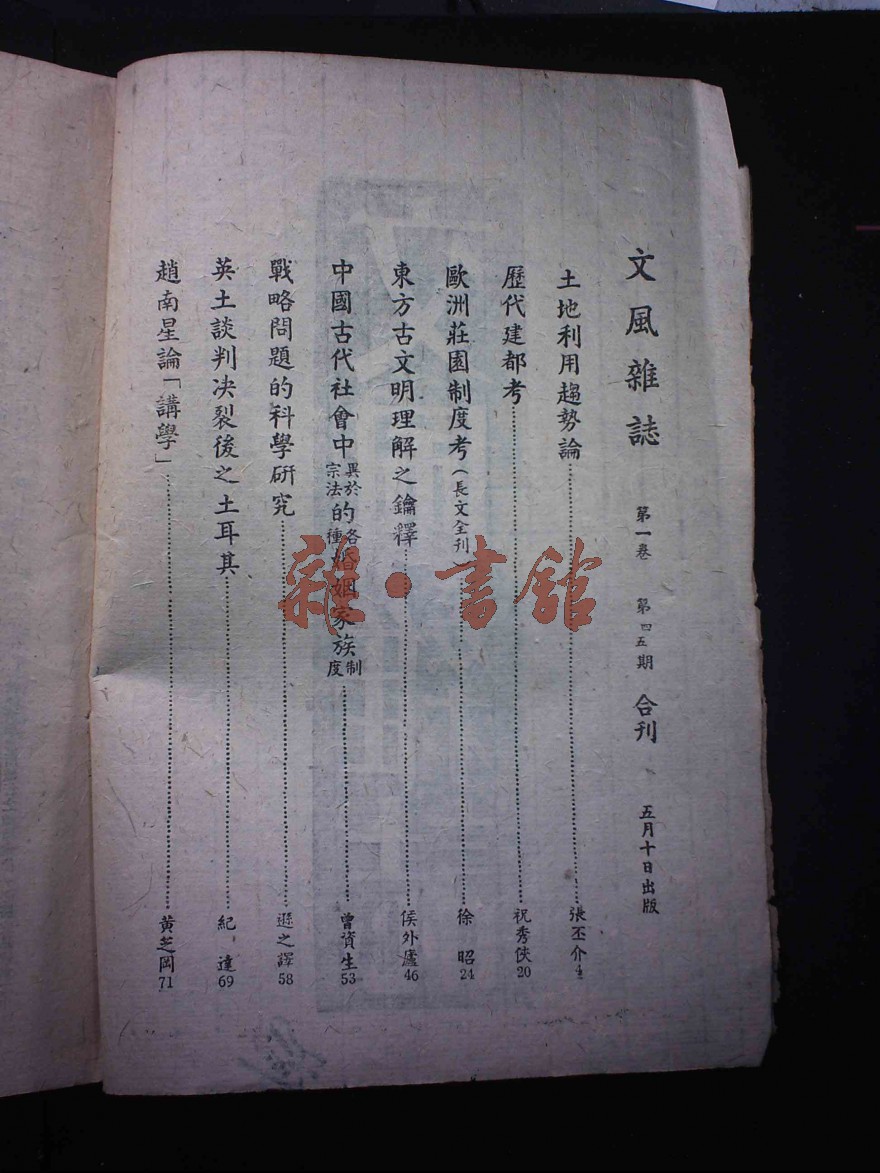 文風雜誌 第一卷 第四五期 合刊 五月十日出版
土地利用趨勢論……張丕介 4
歷代建都考……祝秀俠 20
歐洲莊園制度考(長文全刊)……徐昭 24
東方古文明理解之鑰釋……侯外廬 46
中國古代社會中異於宗法的各種婚姻家族制度……曾資生 53
戰略問題的科學研究……遜之譯 58
英土談判決裂後之土耳其……紀達 69
趙南星論「講學」……黃芝岡 71
雜·書館